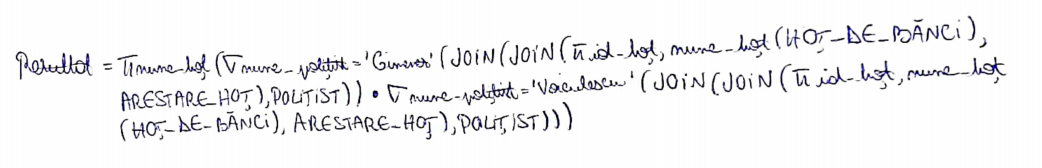 Rezultat = πnume_hoț (σnume_polițist = 'Ginerer' (JOIN(JOIN(π id_hoț, nume_hoț (HOȚ_DE_BĂNCI),
ARESTARE_HOȚ), POLITIST)) • σ nume_polițist = 'Voiculescu' (JOIN(JOIN(π id_hoț, nume_hoț
(HOȚ_DE_BĂNCI), ARESTARE_HOȚ), POLIȚIST)))